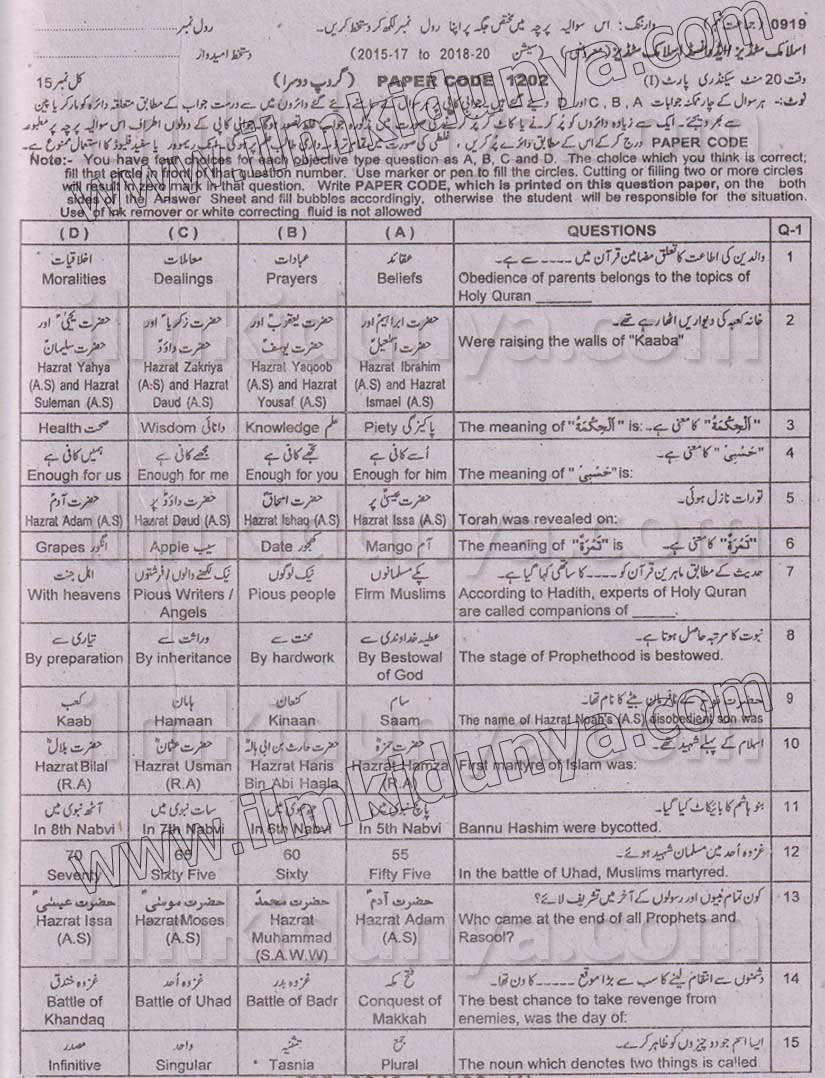 0919 (جماعت نہم) وارننگ: اس سوالیہ پرچہ میں مختص جگہ پر اپنا رول نمبر لکھ کر دستخط کریں۔ رول نمبر
(سیشن 2015-17 to 2018-20) دستخط امیدوار
وقت 20 منٹ سیکنڈری پارٹ (I) PAPER CODE 1202 (گروپ دوسرا) کل نمبر 15
Note:- You have four choices for each objective type question as A, B, C and D. The choice which you think is correct;
fill that circle in front of that question number. Use marker or pen to fill the circles. Cutting or filling two or more circles
will result in zero mark in that question. Write PAPER CODE, which is printed on this question paper, on the both
sides of the Answer Sheet and fill bubbles accordingly, otherwise the student will be responsible for the situation.
Use of ink remover or white correcting fluid is not allowed
( D ) ( C ) ( B ) ( A ) QUESTIONS Q-1
1 والدین کی اطاعت کا تعلق مضامین قرآن میں ---- سے ہے۔
عقائد عبادات معاملات اخلاقیات
Obedience of parents belongs to the topics of
Holy Quran _______
Beliefs Prayers Dealings Moralities
2 خانہ کعبہ کی دیواریں اٹھا رہے تھے۔
حضرت ابراہیمؑ اور حضرت یعقوبؑ اور حضرت زکریاؑ اور حضرت یحییٰؑ اور
حضرت اسمٰعیلؑ حضرت یوسفؑ حضرت داؤدؑ حضرت سلیمانؑ
Were raising the walls of "Kaaba"
Hazrat Ibrahim
(A.S) and Hazrat
Ismael (A.S)
Hazrat Yaqoob
(A.S) and Hazrat
Yousaf (A.S)
Hazrat Zakriya
(A:S) and Hazrat
Daud (A.S)
Hazrat Yahya
(A.S) and Hazrat
Suleman (A.S)
3 "اَلْحِکْمَةُ" کا معنی ہے۔ The meaning of "اَلْحِکْمَةُ" is:
پاکیزگی Piety علم Knowledge دانائی Wisdom صحت Health
4 "حَسْبِیْ" کا معنی ہے۔
اُسے کافی ہے تجھے کافی ہے مجھے کافی ہے ہمیں کافی ہے
The meaning of "حَسْبِیْ" is:
Enough for him Enough for you Enough for me Enough for us
5 تورات نازل ہوئی۔
حضرت عیسیٰؑ پر حضرت اسحاقؑ حضرت داؤدؑ پر حضرت آدمؑ
Torah was revealed on:
Hazrat Issa (A.S) Hazrat Ishaq (A.S) Hazrat Daud (A.S) Hazrat Adam (A.S)
6 "تَمْرَةٌ" کا معنی ہے۔ The meaning of "تَمْرَةٌ" is
آم Mango کھجور Date سیب Apple انگور Grapes
7 حدیث کے مطابق ماہرین قرآن کو ---- کا ساتھی کہا گیا ہے۔
پکے مسلمانوں نیک لوگوں نیک لکھنے والوں/فرشتوں اہل جنت
According to Hadith, experts of Holy Quran
are called companions of _____.
Firm Muslims Pious people Pious Writers /
Angels With heavens
8 نبوت کا مرتبہ حاصل ہوتا ہے۔
عطیہ خداوندی سے محنت سے وراثت سے تیاری سے
The stage of Prophethood is bestowed.
By Bestowal
of God By hardwork By inheritance By preparation
9 حضرت نوحؑ کے نافرمان بیٹے کا نام تھا۔
سام کنعان ہامان کعب
The name of Hazrat Noah's (A.S) disobedient son was
Saam Kinaan Hamaan Kaab
10 اسلام کے پہلے شہید تھے۔
حضرت حمزہؓ حضرت حارث بن ابی ہالہؓ حضرت عثمانؓ حضرت بلالؓ
First martyre of Islam was:
Hazrat Hamza
(R.A)
Hazrat Haris
Bin Abi Haala
Hazrat Usman
(R.A)
Hazrat Bilal
(R.A)
11 بنو ہاشم کا بائیکاٹ کیا گیا۔
پانچ نبوی میں چھ نبوی میں سات نبوی میں آٹھ نبوی میں
Bannu Hashim were bycotted.
In 5th Nabvi In 6th Nabvi In 7th Nabvi In 8th Nabvi
12 غزوہ احد میں مسلمان شہید ہوئے۔
55 60 65 70
In the battle of Uhad, Muslims martyred.
Fifty Five Sixty Sixty Five Seventy
13 کون تمام نبیوں اور رسولوں کے آخر میں تشریف لائے؟
حضرت آدمؑ حضرت محمدؐ حضرت موسیٰؑ حضرت عیسیٰؑ
Who came at the end of all Prophets and
Rasool?
Hazrat Adam
(A.S)
Hazrat
Muhammad
(S.A.W.W)
Hazrat Moses
(A.S)
Hazrat Issa
(A.S)
14 دشمنوں سے انتقام لینے کا سب سے بڑا موقع ----- کا دن تھا۔
فتح مکہ غزوہ بدر غزوہ احد غزوہ خندق
The best chance to take revenge from
enemies, was the day of:
Conquest of
Makkah Battle of Badr Battle of Uhad Battle of
Khandaq
15 ایسا اسم جو دو چیزوں کو ظاہر کرے۔
جمع تثنیہ واحد مصدر
The noun which denotes two things is called
Plural Tasnia Singular Infinitive
www.ilmkidunya.com